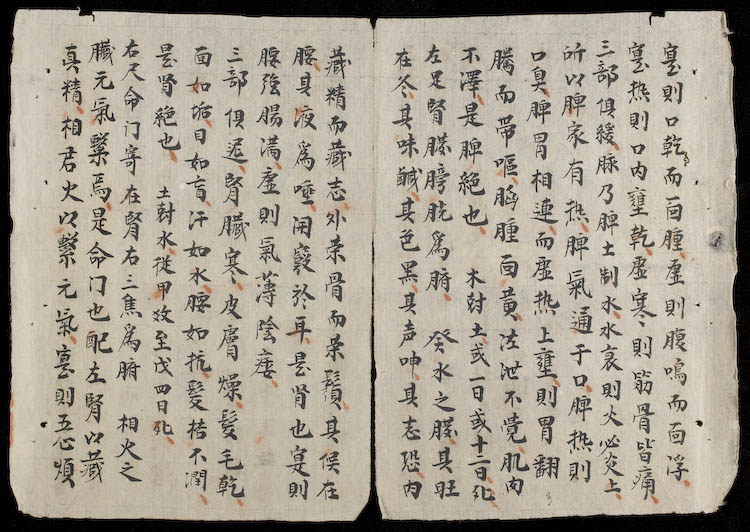 寔則口乾而面腫虛則腹鳴而面浮
寔热則口内壅乾虛寒則筋骨皆痛
三部俱緩脉乃脾土制水水衰則火必炎上
所以脾家有热脾氣通于口脾热則
口臭脾胃相連而虛热上壅則胃翻
騰而带嘔腸腫面黄法泄不覺肌肉
不澤是脾絶也　木尅土或一日或十二日死
左足腎膀胱爲腑　癸水之臟其旺
在冬其味鹹其色黑其声呻其志恐内
藏精而藏志外荣骨而荣鬚其候在
腰其液爲唾開竅於耳是肾也寔則
腰強腸满虛則氣薄陰痿
三部俱迟腎臟寒皮膚燥髮毛乾
面如垢目如盲汗如水腰如抗髮枯不潤
是肾絶也　土尅水從甲攻至戊四日死
右尺命门寄在腎右三焦爲腑　相火之
臟元氣繫焉是命门也配左腎以藏
真精相君火以繫元氣寔則五心煩